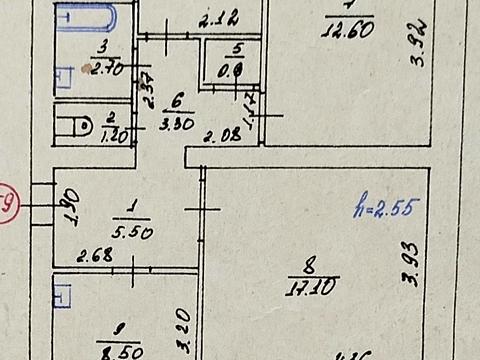 2.12
12.60
3.92
3
2.70
2.37
5
6
3.30
2
1.20
2.08
1.90
1
5.50
h=2.55
2.68
8
17.10
3.93
3.20
9
8.50